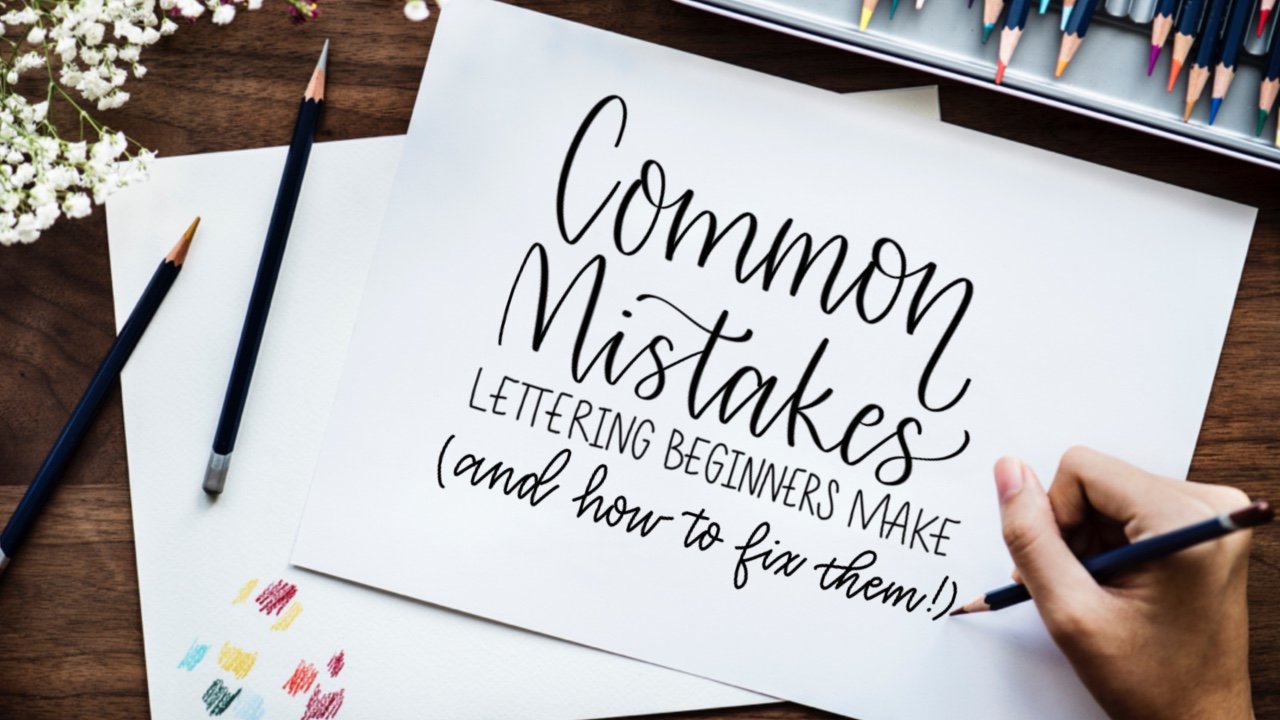 Common
Mistakes
LETTERING BEGINNERS MAKE
(and how to fix them!)